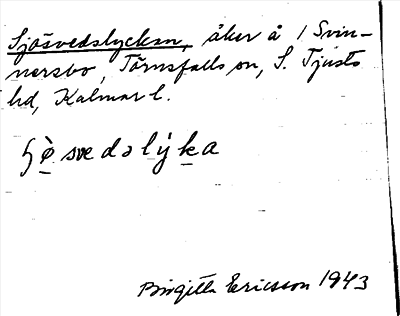 Sjösvedslyckan, åker å 1 Svin-
nersbo, Törnsfalls sn, S. Tjusts
hd, Kalmar l.
svedalyka
Birgitta Ericsson 1943